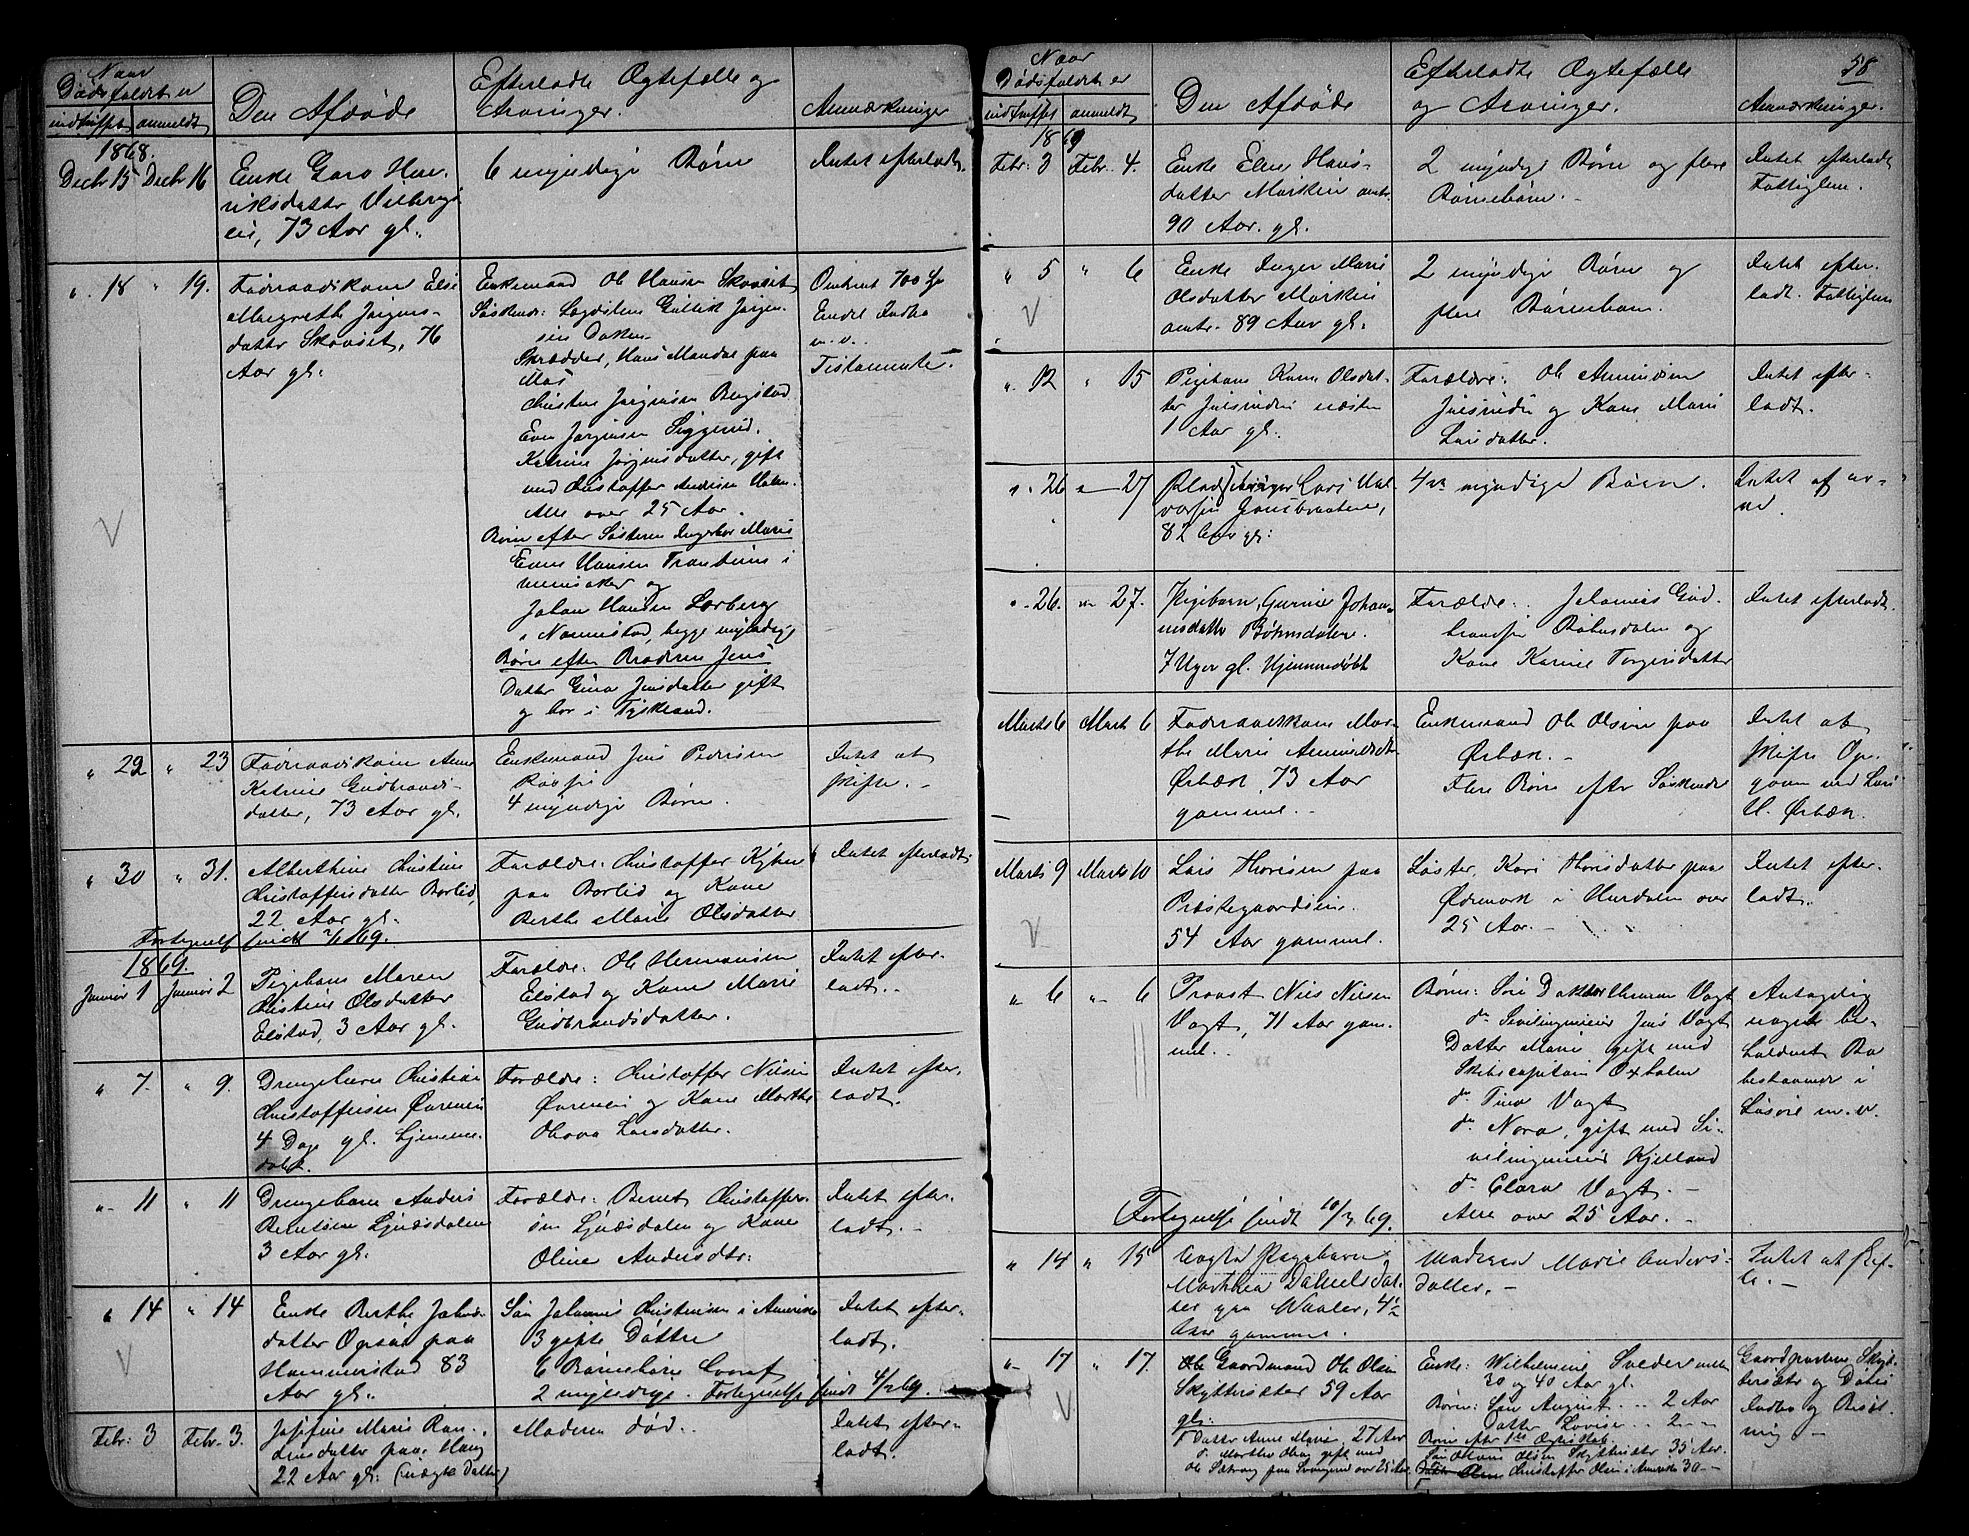 Naar
Dødsfaldet er
indtruffet anmeldt
Den Afdøde
Efterladte Ægtefælle og
Arvinger.
Anmærkninger
1868.
Decbr 15 Decbr 16
Enke Hen-
riksdatter
73 Aar gl.
6 myndige Børn
Intet efterladt.
" 18 " 19.
Føderaadskone Else
Margrethe Jørgens-
datter Skovset, 76
Aar gl.
Enkemand Ole Hansen Skovset
Søskende: Gullik Jørgen-
sen
Skrædder, Hans paa
Moe
Christen Jørgensen
Even Jørgensen Siggerud.
Katrine Jørgensdatter, gift
med Christoffer Andersen
Alle over 25 Aar.
Børn efter Søsteren Ingebor Marie
Even Hansen i
og
Johan Hansen
i Nannestad, begge myndige
Børn efter Broderen Jens
Datter Gina Jensdatter gift
og bor i Tyskland.
Omtrent 700
Endel Indbo
m. v.
Testamente.
" 22 " 23
Føderaadskone Anne
Katrine Gudbrands-
datter, 73 Aar gl.
Enkemand Jens Pedersen
4 myndige Børn.
Intet at
skifte. -
" 30 " 31.
Alberthine Christine
Christoffersdatter Borlid,
22 Aar gl.
Forældre: Christoffer
paa Borlid og Kone
Berthe Marie Olsdatter
Intet efterladt.
Fortegnelse sendt 69.
1869.
Januar 1 Januar 2
Pigebarn Maren
Christine Olsdatter
Elstad, 3 Aar gl.
Forældre: Ole Hermansen
Elstad og Kone Marie
Gudbrandsdatter.
Intet efter-
ladt. -
" 7. " 9.
Drengebarn Christian
Christoffersen
4 Dage gl. Hjemme-
døbt.
Forældre: Christoffer Nilsen
og Kone Marthe
Larsdatter.
Intet efter-
ladt.
" 11 " 11
Drengebarn Anders
Berntsen Ljøsdalen
3 Aar gl.
Forældre: Bernt Christoffer-
sen Ljøsdalen og Kone
Oline Andersdtr:
Intet efter-
ladt. -
" 14 " 14
Enke Berthe Johns-
datter Opsal paa
Hammerstad 83
Aar gl.
Søn Johannes Christensen i Amerika
3 gifte Døttre
6 Børnebørn hvoraf
2 myndige. Fortegnelse sendt 4/2 69.
Intet efter-
ladt.
Febr: 3 Febr. 3.
Josefine Marie
datter paa Haug
22 Aar gl. (uægte Datter)
Moderen død.
Intet efter-
ladt.
58
Naar
Dødsfaldet er
indtruffet anmeldt
Den Afdøde
Efterladte Ægtefælle
og Arvinger.
Anmærkninger.
1869
Febr: 3 Febr. 4.
Enke Elen Hans-
datter
90 Aar. gl.
2 myndige Børn og flere
Børnebørn. -
Intet efterladt
Fattiglem.
" 5 " 6
Enke Inger Marie
Olsdatter
89 Aar gl.
2 myndige Børn og
flere Børnebørn.
Intet efter-
ladt. Fattiglem
" 12 " 15
Pigebarn Karen Olsdat-
ter Julsrudei næsten
1 Aar gl.
Forældre: Ole Amundsen
Julsrudei og Kone Marie
Larsdatter.
Intet efter-
ladt.
" 26 " 27
Lars Hal-
vorsen
82 Aar gl:
4re myndige Børn.
Intet at ar-
ve.
" 26. " 27.
Pigebarn, Gurine Johan-
nesdatter Bøhnsdalen.
7 Uger gl. Hjemmedøbt
Forældre: Johannes Gud-
brandsen Bøhnsdalen og
Kone Karine Torgersdatter
Intet efterladt.
Marts 6 Marts 6
Føderaadskone Mar-
the Marie Amundsdatter
Ørbæk, 73 Aar
gammel. -
Enkemand Ole Olsen paa
Ørbæk. -
Flere Børn efter Søskende
Intet at
skifte Op-
gjøres med Lars
H. Ørbæk.
Marts 9 Marts 10
Lars Thoresen paa
Præstegaardseie.
54 Aar gammel.
Søster, Kari Thoresdatter paa
Ødemark i Hurdalen over
25 Aar. -
Intet efter-
ladt.
" 6 " 6
Provst Nils Nilsen
Vogt, 71 Aar gam-
mel.
Børn: Søn Doktor Herman Vogt
do Sivilingeniør Jens Vogt
Datter Marie gift med
Skibscapitain Oxholm
do Tina Vogt
do Nora, gift med Si-
vilingeniør Kjelland
do Clara Vogt. -
Alle over 25 Aar. -
Antagelig
noget be-
holdent Bo
bestaaende i
Løsøre m. v.
Fortegnelse sendt 10/3 69.
" 14 " 15
Uægte Pigebarn
Marthea Danielsdat-
ter fra Waaler, 4½
Aar gammel.
Moderen Marie Anders-
datter. -
Intet at skif-
te. -
" 17 " 17.
Gaardmand Ole Olsen
Skyttersæter 59 Aar
gl:
Datter Anne Marie, 27 Aar
Marthe gift med
Ole paa over 25 Aar.
Enke: Wilhelmine mellem
30 og 40 Aar gl.
Børn: Søn August. - - 2 Aar
Datter Lovise - - 2 -
Børn efter 1ste Ægteskab
Søn Olsen Skyttersæter 35 Aar.
Christoffer Olsen i Amerika 30 -
Gaardparten Skyt-
tersæter og
Indbo og Besæt-
ning -